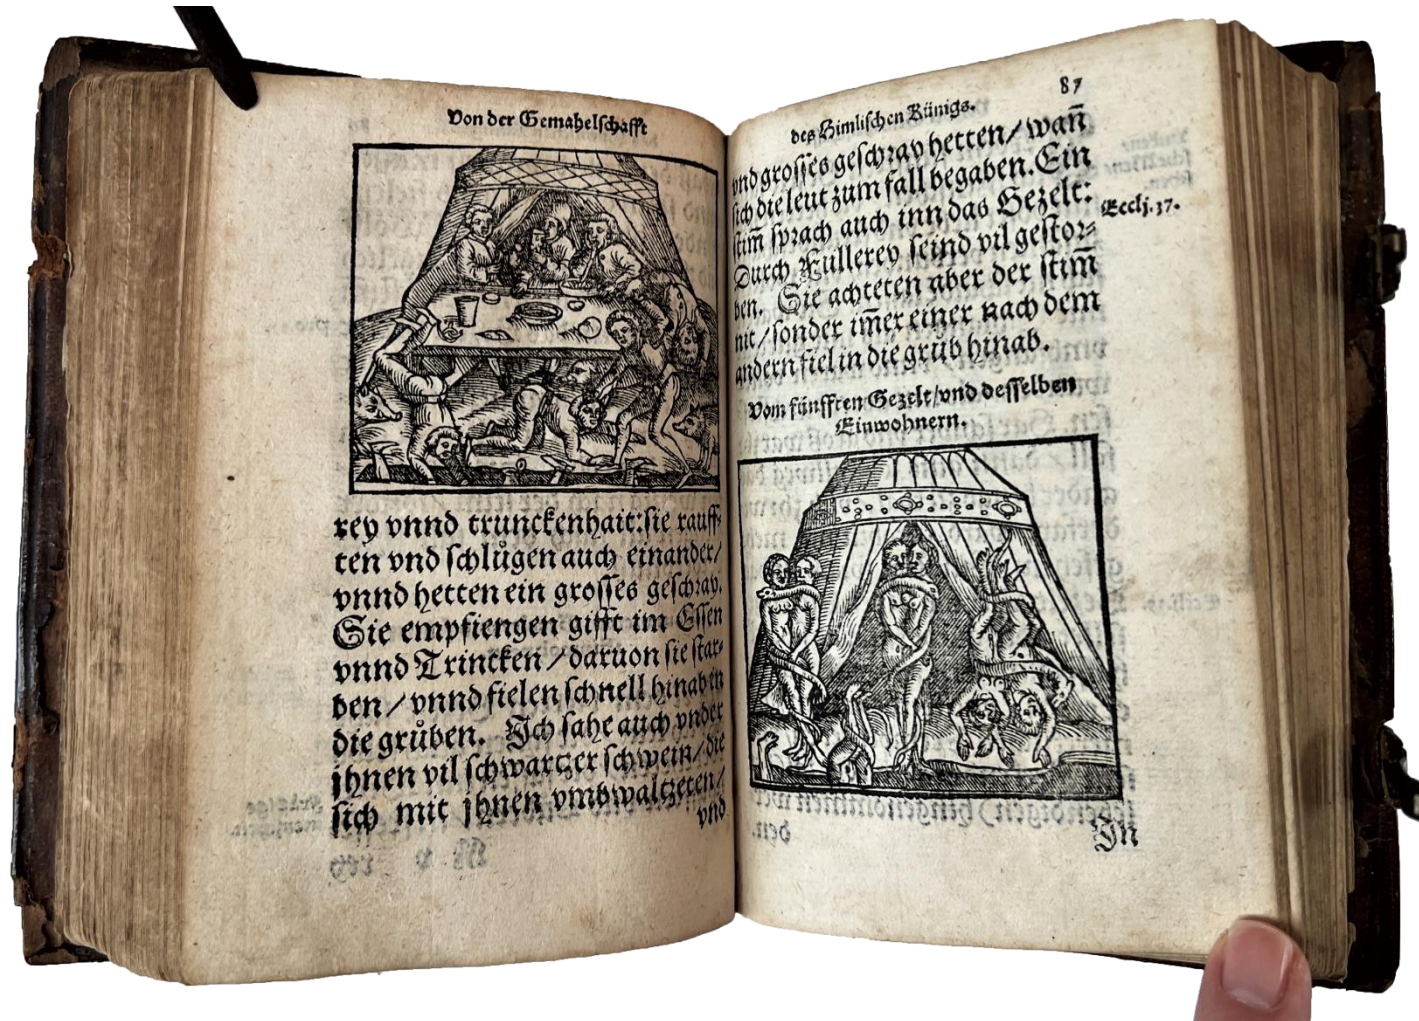 Von der Gemahelschafft
rey vnnd trunckenhait:sie rauff-
ten vnd schlůgen auch einander/
vnnd hetten ein grosses geschray.
Sie empfiengen gifft im Essen
vnnd Trincken/daruon sie star-
ben/vnnd fielen schnell hinab in
die grůben. Ich sahe auch vnder
jhnen vil schwartzer schwein/die
sich mit jhnen vmbwaltzeten/
vnd
87
des Himlischen Künigs.
vnd grosses geschray hetten/wañ
sich die leut zum fall begaben. Ein
stim̃ sprach auch inn das Gezelt:
Durch Füllerey seind vil gestor-
ben. Sie achteten aber der stim̃
nit/sonder im̃er einer nach dem
andern fiel in die grůb hinab.
Eccli.37.
Vom fünfften Gezelt/vnd desselben
Einwohnern.
In